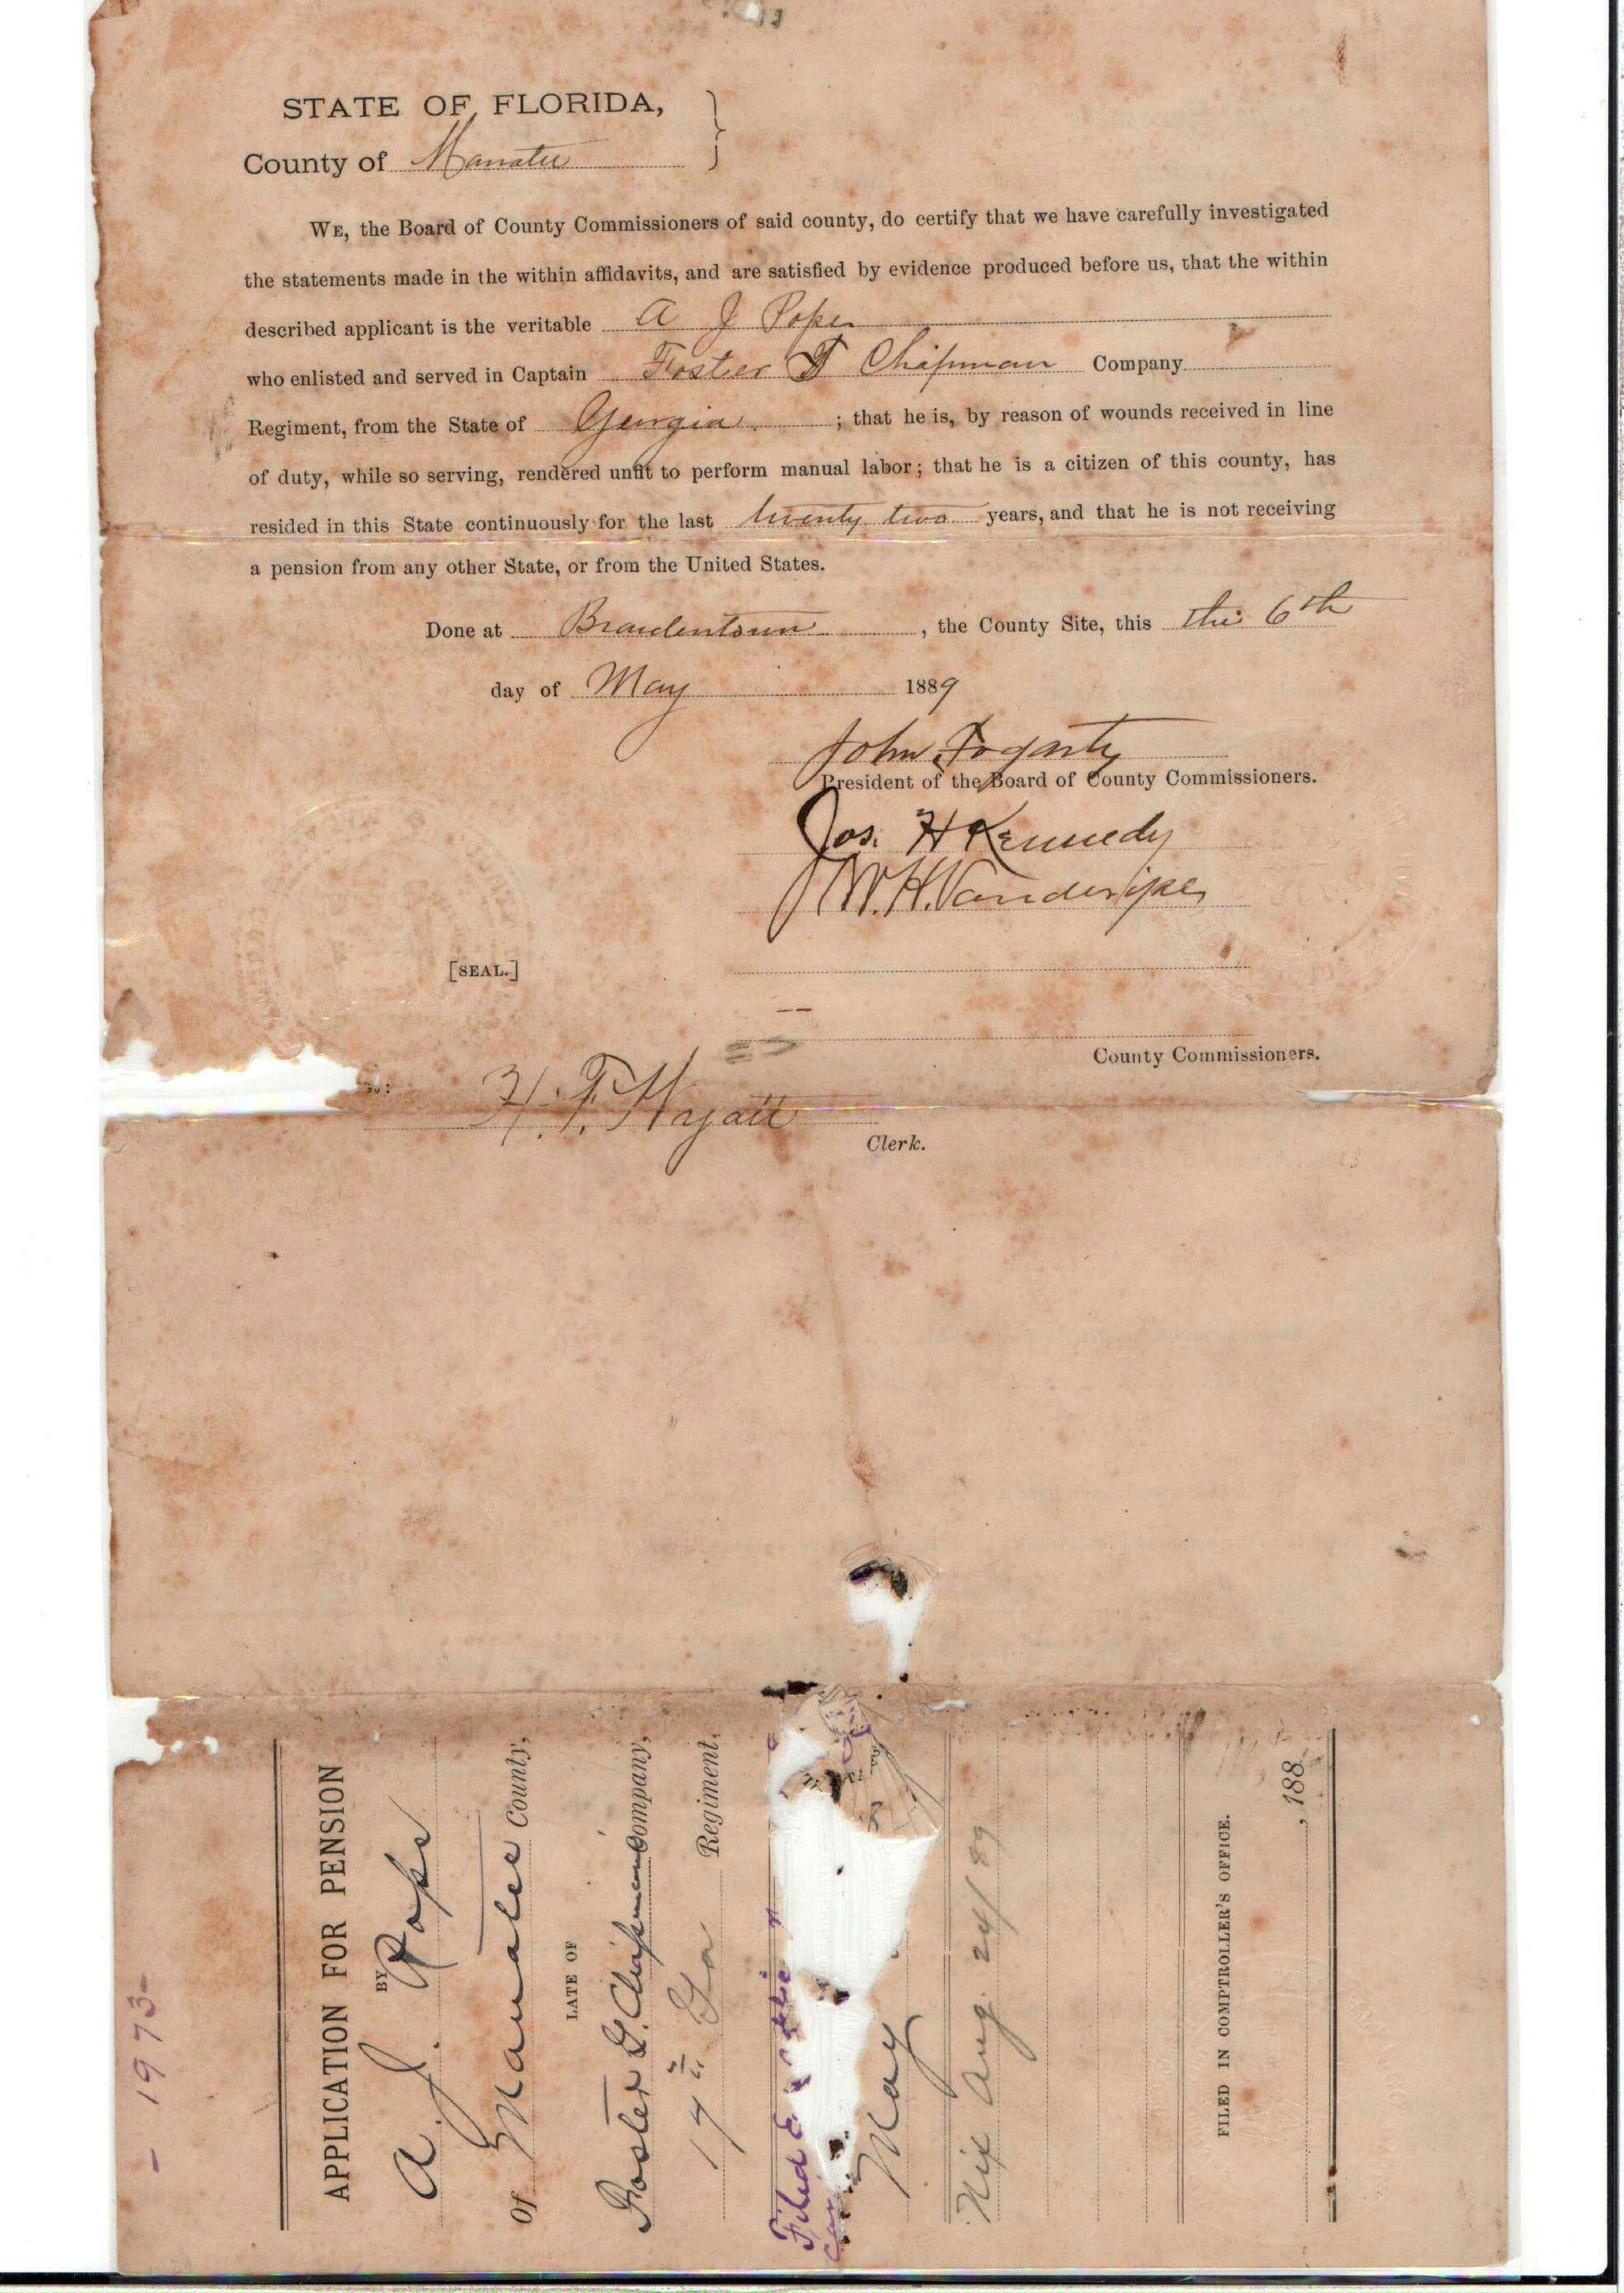 STATE OF FLORIDA,
County of Manatee
WE, the Board of County Commissioners of said county, do certify that we have carefully investigated
the statements made in the within affidavits, and are satisfied by evidence produced before us, that the within
described applicant is the veritable A J Pope
who enlisted and served in Captain Foster T Chapman Company
Regiment, from the State of Georgia ; that he is, by reason of wounds received in line
of duty, while so serving, rendered unfit to perform manual labor; that he is a citizen of this county, has
resided in this State continuously for the last twenty two years, and that he is not receiving
a pension from any other State, or from the United States.
Done at Braidentown, the County Site, this the 6th
day of May 1889
John Fogarty
President of the Board of County Commissioners.
Jos. H Kennedy
W. H. Vanderipe
[SEAL.]
County Commissioners.
H. T. Wyatt
Clerk.
- 1973-
APPLICATION FOR PENSION
BY
A. J. Pope
Of Manatee County,
LATE OF
Foster G. Chapman Company,
17" Ga Regiment.
Filed
May
Aug. 24/89
FILED IN COMPTROLLER'S OFFICE.
, 188